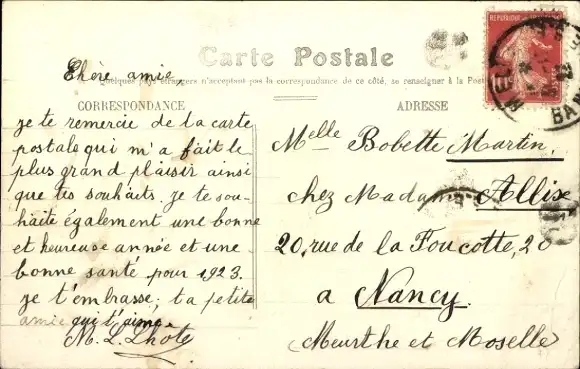 Carte Postale
Quelques pays étrangers n'acceptant pas la correspondance de ce côté, se renseigner à la Poste
CORRESPONDANCE
ADRESSE
Chère amie
je te remercie de la carte
postale qui m'a fait le
plus grand plaisir ainsi
que tes souhaits. je te sou-
haite également une bonne
et heureuse année et une
bonne santé pour 1923.
je t'embrasse, ta petite
amie qui t'aime
M. L. Lhôte
Melle Bobette Martin,
chez Madame Allix
20, rue de la Foucotte, 20
a Nancy.
Meurthe et Moselle